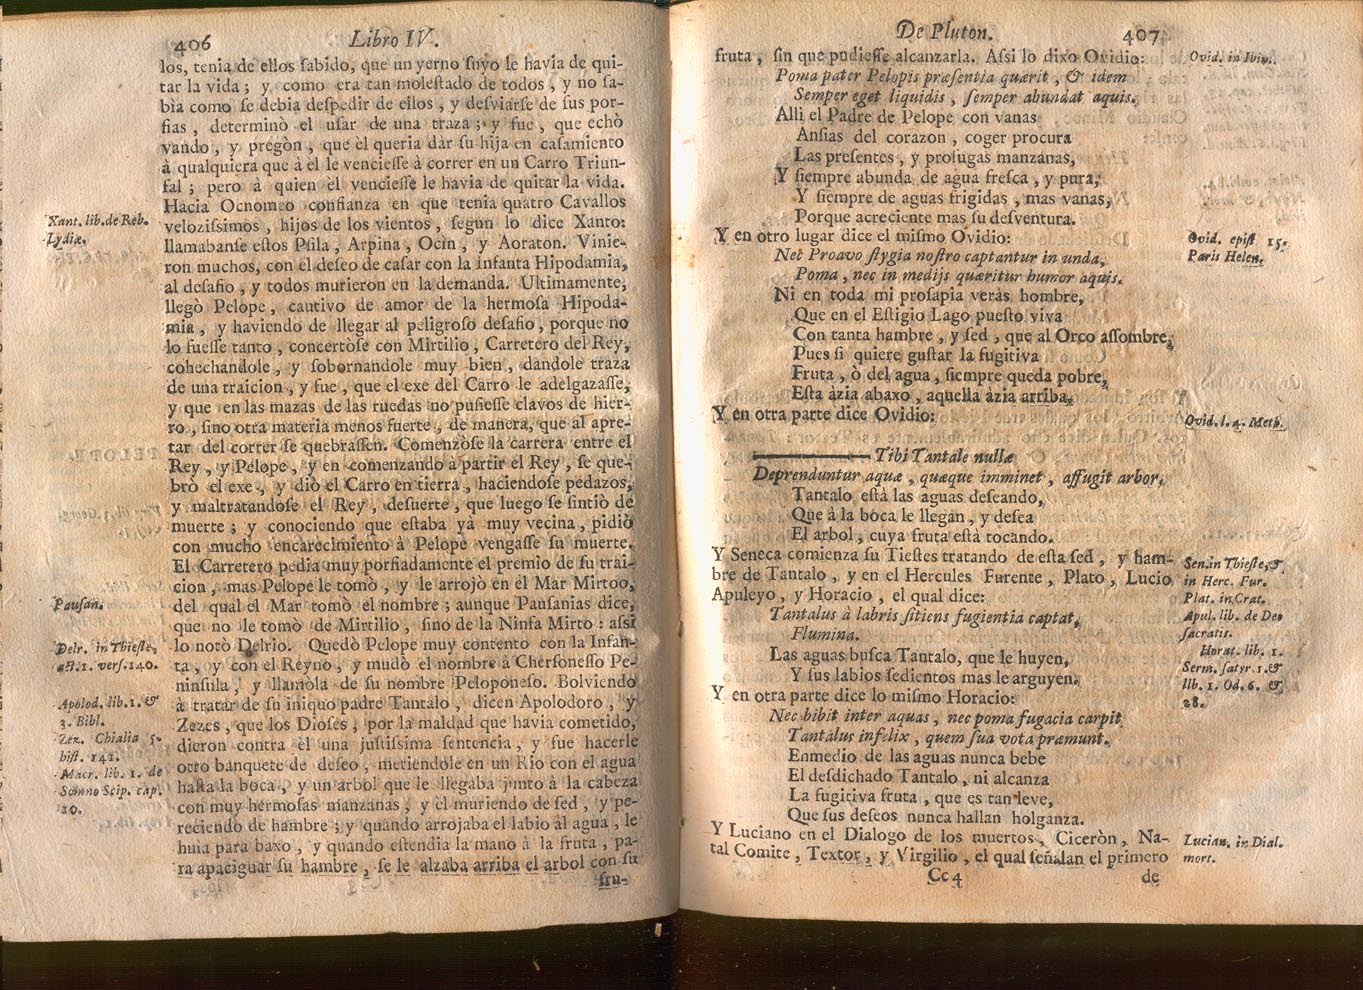 406 Libro IV.
los, tenia de ellos sabido, que un yerno suyo se havia de qui-
tar la vida; y como era tan molestado de todos, y no sa-
bia como se debia despedir de ellos, y desviarse de sus por-
fias, determinò el usar de una traza; y fue, que echò
vando, y pregòn, que èl queria dàr su hija en casamiento
à qualquiera que à èl le venciesse à correr en un Carro Triun-
fal; pero à quien èl venciesse le havia de quitar la vida.
Hacia Ocnomeo confianza en que tenia quatro Cavallos
velozissimos, hijos de los vientos, segun lo dice Xanto:
llamabanse estos Psila, Arpina, Ocin, y Aoraton. Vinie-
ron muchos, con el deseo de casar con la infanta Hipodamia,
al desafio, y todos murieron en la demanda. Ultimamente,
llegò Pelope, cautivo de amor de la hermosa Hipoda-
mia, y haviendo de llegar al peligroso desafio, porque no
lo fuesse tanto, concertòse con Mirtilio, Carretero del Rey,
cohechandole, y sobornandole muy bien, dandole traza
de una traicion, y fue, que el exe del Carro le adelgazasse,
y que en las mazas de las ruedas no pusiesse clavos de hier-
ro, sino otra materia menos fuerte, de manera, que al apre-
tar del correr se quebrassen. Comenzòse la carrera entre el
Rey, y Pelope, y en comenzando à partir el Rey, se que-
brò el exe, y diò el Carro en tierra, haciendose pedazos,
y maltratandose el Rey, desuerte, que luego se sintiò de
muerte; y conociendo que estaba yà muy vecina, pidiò
con mucho encarecimiento à Pelope vengasse su muerte.
El Carretero pedia muy porfiadamente el premio de su trai-
cion, mas Pelope le tomò, y le arrojò en el Mar Mirtoo,
del qual el Mar tomò el nombre; aunque Pausanias dice,
que no le tomò de Mirtilio, sino de la Ninfa Mirto: assi
lo notò Delrio. Quedò Pelope muy contento con la Infan-
ta, y con el Reyno, y mudò el nombre à Chersonesso Pe-
ninsula, y llamòla de su nombre Peloponeso. Bolviendo
à tratar de su iniquo padre Tantalo, dicen Apolodoro, y
Zezes, que los Dioses, por la maldad que havia cometido,
dieron contra èl una justissima sentencia, y fue hacerle
otro banquete de deseo, metiendole en un Rio con el agua
hasta la boca, y un arbol que le llegaba junto à la cabeza
con muy hermosas manzanas; y èl muriendo de sed, y pe-
reciendo de hambre; y quando arrojaba el labio al agua, le
huia para baxo, y quando estendia la mano à la fruta, pa-
ra apaciguar su hambre, se le alzaba arriba el arbol con su
fru-
Xant. lib. de Reb.
Lydiæ.
Pausan.
Delr. in Thieste,
act. 1. vers. 140.
Apolod. lib. 1. &
3. Bibl.
Zez. Chialia 5.
hist. 141.
Macr. lib. 1. de
Somno Scip. cap.
10.
De Pluton. 407
fruta, sin que pudiesse alcanzarla. Assi lo dixo Ovidio:
Poma pater Pelopis præsentia quærit, & idem
Semper eget liquidis, semper abundat aquis.
Alli el Padre de Pelope con vanas
Ansias del corazon, coger procura
Las presentes, y profugas manzanas,
Y siempre abunda de agua fresca, y pura,
Y siempre de aguas frigidas, mas vanas,
Porque acreciente mas su desventura.
Y en otro lugar dice el mismo Ovidio:
Net Proavo stygia nostro captantur in unda,
Poma, nec in medijs quæritur humor aquis.
Ni en toda mi prosapia veràs hombre,
Que en el Estigio Lago puesto viva
Con tanta hambre, y sed, que al Orco assombre,
Pues si quiere gustar la fugitiva
Fruta, ò del agua, siempre queda pobre,
Esta àzia abaxo, aquella àzia arriba.
Y en otra parte dice Ovidio:
Tibi Tantale nullæ
Deprenduntur aquæ, quæque imminet, affugit arbor.
Tantalo està las aguas deseando,
Que à la boca le llegan, y desea
El arbol, cuya fruta està tocando.
Y Seneca comienza su Tiestes tratando de esta sed, y ham-
bre de Tantalo, y en el Hercules Furente, Plato, Lucio
Apuleyo, y Horacio, el qual dice:
Tantalus à labris sitiens fugientia captat,
Flumina.
Las aguas busca Tantalo, que le huyen,
Y sus labios sedientos mas le arguyen.
Y en otra parte dice lo mismo Horacio:
Nec bibit inter aquas, nec poma fugacia carpit
Tantalus infelix, quem sua vota præmunt.
Enmedio de las aguas nunca bebe
El desdichado Tantalo, ni alcanza
La fugitiva fruta, que es tan leve,
Que sus deseos nunca hallan holganza.
Y Luciano en el Dialogo de los muertos, Ciceròn, Na-
tal Comite, Textor, y Virgilio, el qual señalan el primero
Cc4 de
Ovid. in Ibim.
Ovid. epist 15.
Paris Helen.
Ovid. l. 4. Meth.
Sen. in Thieste, &
in Herc. Fur.
Plat. in Crat.
Apul. lib. de Deo
sacratis.
Horat. lib. 1.
Serm. satyr. 1. &
lib. 1. Od. 6. &
28.
Lucian. in Dial.
mort.